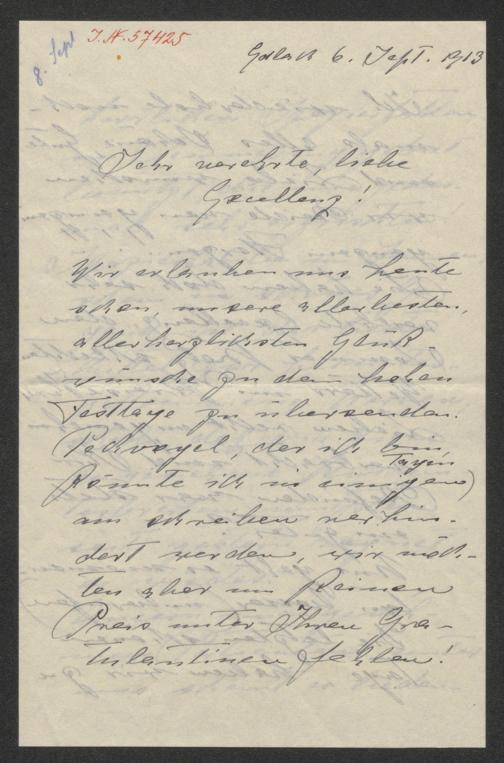 8. Sept
I.N. 57425
6. Sept. 1913
Sehr verehrte, liebe
Excellenz!
Wir erlauben uns heute
schon, unsere allerbesten,
allerherzlichsten Glück-
wünsche zu dem hohen
Festtage zu übersenden.
Pechvogel, der ich bin,
könnte ich in einigen
Tagen
am schreiben verhin-
dert werden, wir möch-
ten aber um keinen
Preis unter Ihren Gra-
tulantinen fehlen!